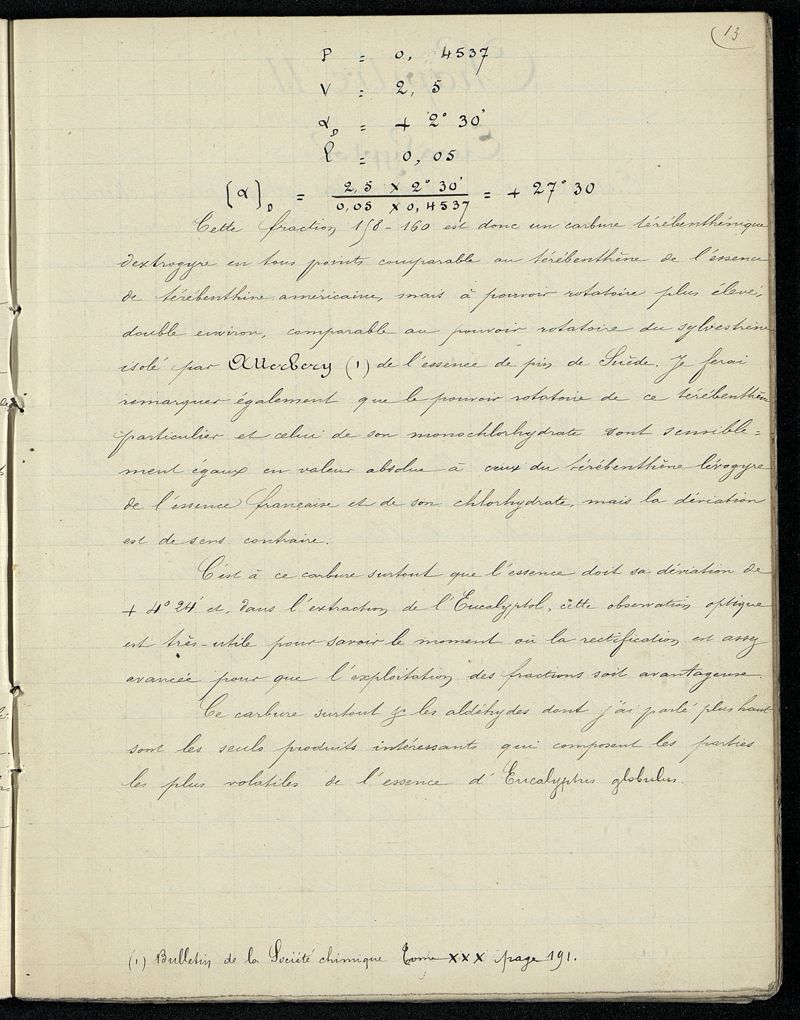 13
P = 0, 4537
V = 2, 5
α D = + 2° 30'
l = 0, 05
[α] D = 2,5 x 2° 30' / 0,05 x 0,4537 = + 27° 30
Cette fraction 158-160 est donc un carbure térébenthénique
dextrogyre en tous points comparable au térébenthène de l'essence
de térébenthine américaine, mais à pouvoir rotatoire plus élevé,
double environ, comparable au pouvoir rotatoire du sylvestrène
isolé par Atterberg (1) de l'essence de pin de Suède. Je ferai
remarquer également que le pouvoir rotatoire de ce térébenthène
particulier et celui de son monochlorhydrate sont sensible=
ment égaux en valeur absolue à ceux du térébenthène lévogyre
de l'essence française et de son chlorhydrate, mais la déviation
est de sens contraire.
C'est à ce carbure surtout que l'essence doit sa déviation de
+ 4° 24' et, dans l'extraction de l'Eucalyptol, cette observation optique
est très-utile pour savoir le moment où la rectification est assez
avancée pour que l'exploitation des fractions soit avantageuse.
Ce carbure surtout & les aldéhydes dont j'ai parlé plus haut
sont les seuls produits intéressants qui composent les parties
les plus volatiles de l'essence d'Eucalyptus globulus.
(1) Bulletin de la Société chimique Tome XXX page 191.